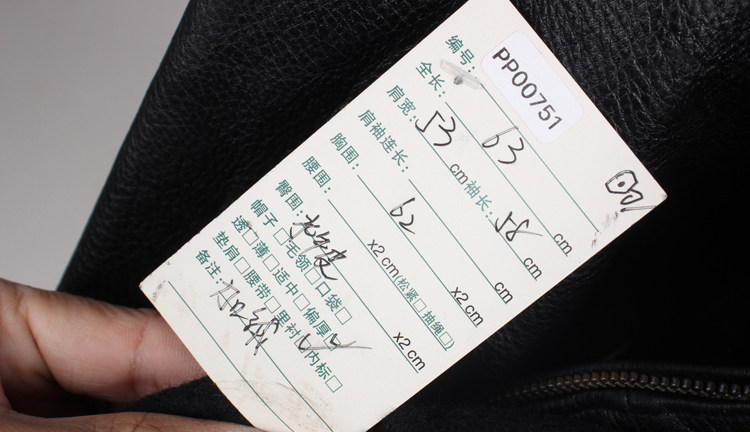 编号: PP00751
全长: 63 cm
肩宽: 53 cm 袖长: 58 cm
肩袖连长: cm
胸围: 62 x2 cm
腰围: x2 cm (松紧□ 抽绳□)
臀围: x2 cm
帽子□ 毛领□ 口袋□
透□ 薄□ 适中□ 偏厚□
垫肩□ 腰带□ 里衬□ 内标□
备注: